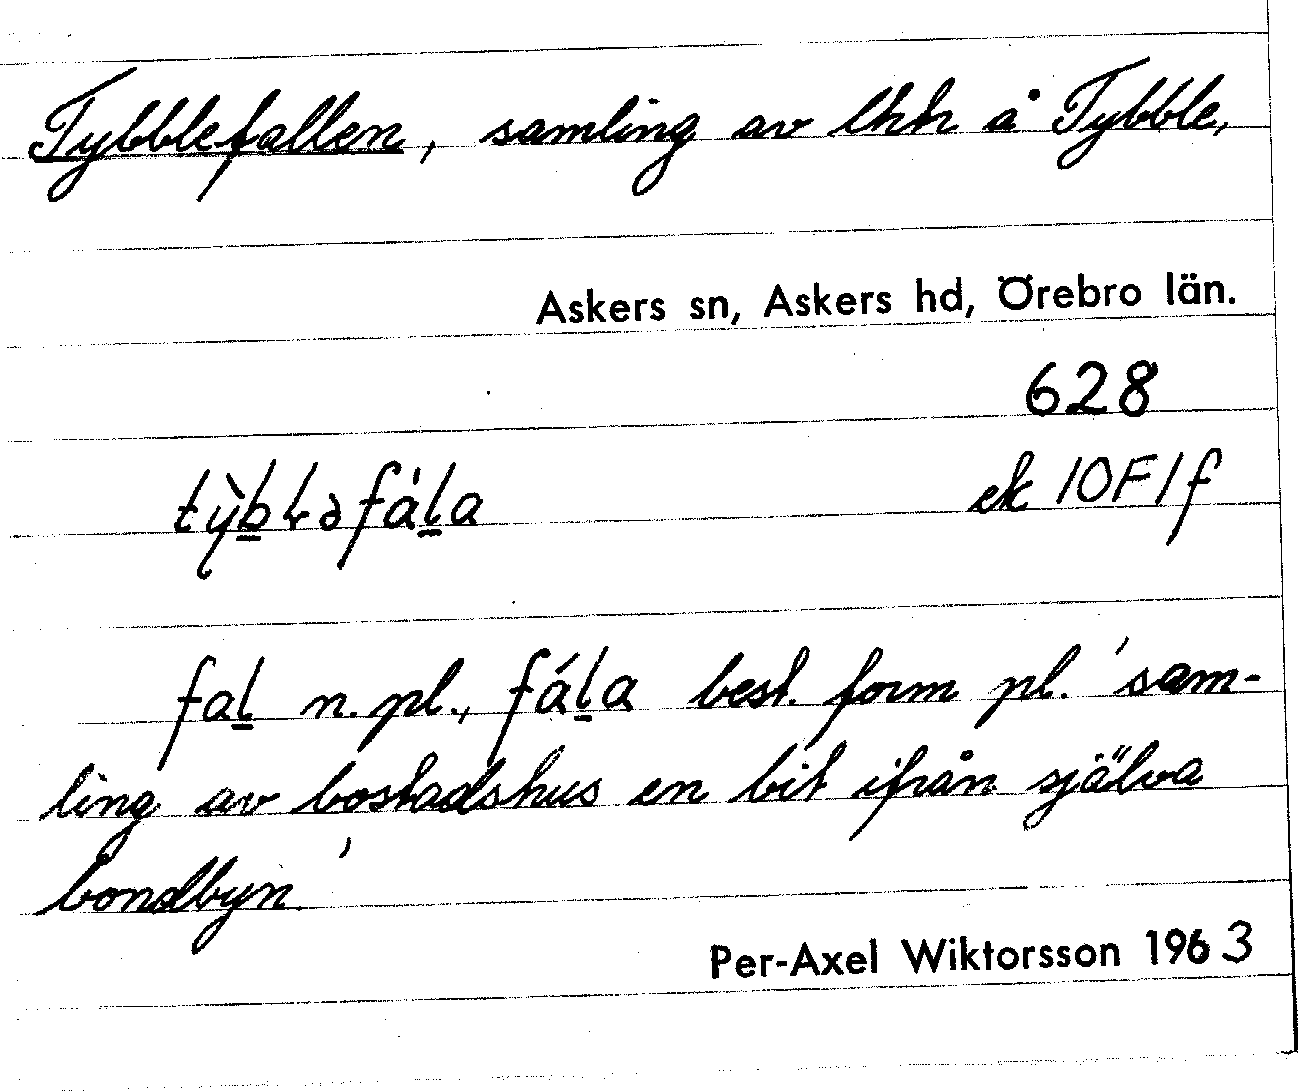 Tybblefallen, samling av lhh å Tybble,
Askers sn, Askers hd, Örebro län.
628
tỳb̲ɬəfál̲a ek 10F1f
fal̲ n. pl., fál̲a best. form pl. 'sam-
ling av bostadshus en bit ifrån själva
bondbyn'
Per-Axel Wiktorsson 1963